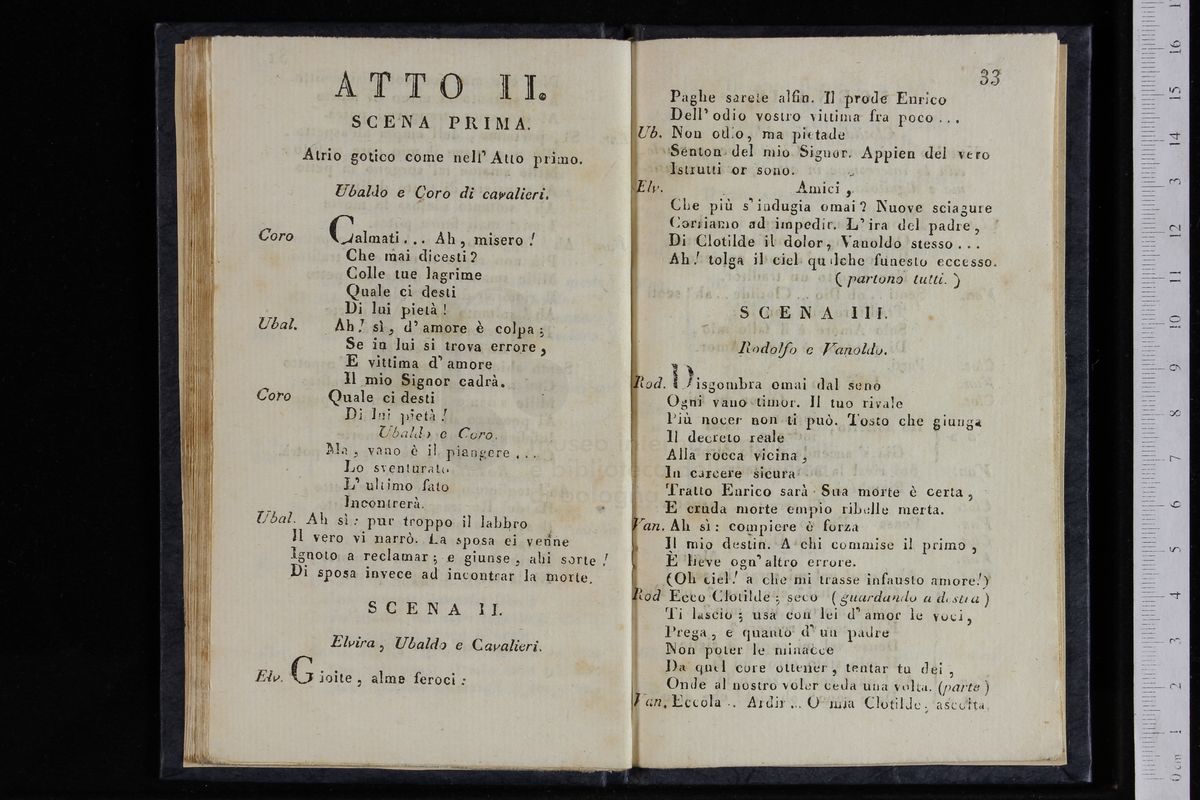 ATTO II.
SCENA PRIMA.
Atrio gotico come nell' Atto primo.
Ubaldo e Coro di cavalieri.
Coro Calmati... Ah, misero!
Che mai dicesti?
Colle tue lagrime
Quale ci desti
Di lui pietà!
Ubal. Ah! sì, d'amore è colpa;
Se in lui si trova errore,
E vittima d'amore
Il mio Signor cadrà.
Coro Quale ci desti
Di lui pietà!
Ubaldo e Coro.
Ma, vano è il piangere...
Lo sventurato
L'ultimo fato
Incontrerà.
Ubal. Ah sì: pur troppo il labbro
Il vero vi narrò. La sposa ei venne
Ignoto a reclamar; e giunse, ahi sorte!
Di sposa invece ad incontrar la morte.
SCENA II.
Elvira, Ubaldo e Cavalieri.
Elv. Gioite, alme feroci:
33
Paghe sarete alfin. Il prode Enrico
Dell'odio vostro vittima fra poco...
Ub. Non odio, ma pietade
Senton del mio Signor. Appien del vero
Istrutti or sono.
Elv. Amici,
Che più s'indugia omai? Nuove sciagure
Corriamo ad impedir. L'ira del padre,
Di Clotilde il dolor, Vanoldo stesso...
Ah! tolga il ciel qualche funesto eccesso.
(partono tutti.)
SCENA III.
Rodolfo e Vanoldo.
Rod. Disgombra omai dal seno
Ogni vano timor. Il tuo rivale
Più nocer non ti può. Tosto che giunga
Il decreto reale
Alla rocca vicina,
In carcere sicura
Tratto Enrico sarà. Sua morte è certa,
E cruda morte empio ribelle merta.
Van. Ah sì: compiere è forza
Il mio destin. A chi commise il primo,
È lieve ogn'altro errore.
(Oh ciel! a che mi trasse infausto amore!)
Rod Ecco Clotilde; seco (guardando a destra)
Ti lascio; usa con lei d'amor le voci,
Prega, e quanto d'un padre
Non poter le minacce
Da quel core ottener, tentar tu dei,
Onde al nostro voler ceda una volta. (parte)
Van. Eccola.. Ardir... O mia Clotilde; ascolta